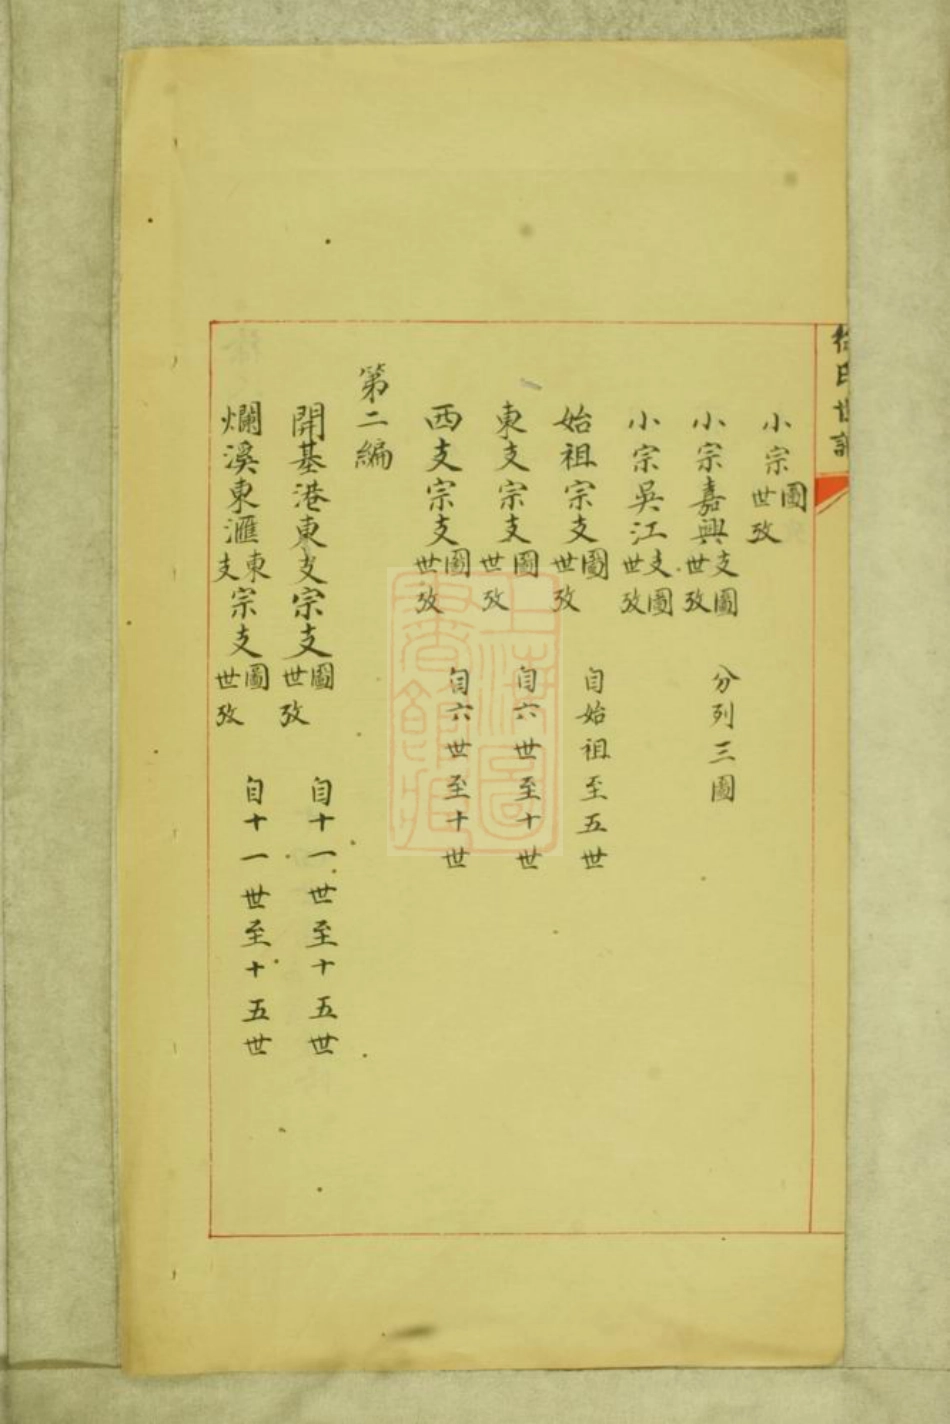 徐氏世譜
小宗圖世攷
小宗嘉興支圖世攷 分列三圖
小宗吳江支圖世攷
始祖宗支圖世攷 自始祖至五世
東支宗支圖世攷 自六世至十世
西支宗支圖世攷 自六世至十世
第二編
開基港東支宗支圖世攷 自十一世至十五世
爛溪東滙東支宗支圖世攷 自十一世至十五世
上海圖書館藏